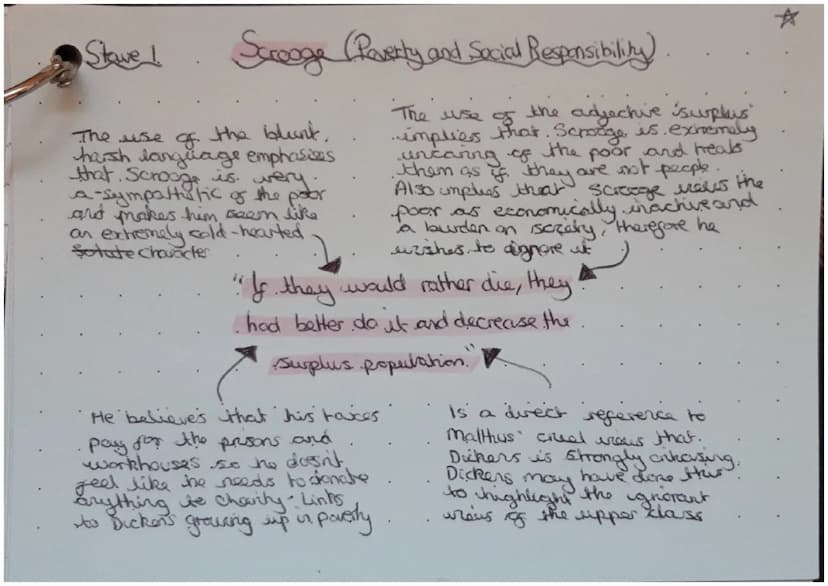 Stave 1.
Scrooge (Poverty and Social Responsibility)
The use of the blunt,
harsh language emphasizes
that Scrooge is very
a-sympathistic of the poor
and makes him seem like
an extremely cold-hearted
character
The use of the adjective 'surplus'
implies that Scrooge is extremely
uncaring of the poor and treats
them as if they are not people.
Also implies that Scrooge views the
poor as economically inactive and
a burden on society, therefore he
wishes to ignore it
"If they would rather die, they
had better do it and decrease the
surplus population."
He believes that his taxes
pay for the prisons and
workhouses so he doesn't
feel like he needs to donate
anything to charity. Links
to Dickens growing up in poverty
Is a direct reference to
Malthus' cruel views that
Dickens is strongly
Dickens may have done this
to highlight the ignorant
views of the upper class